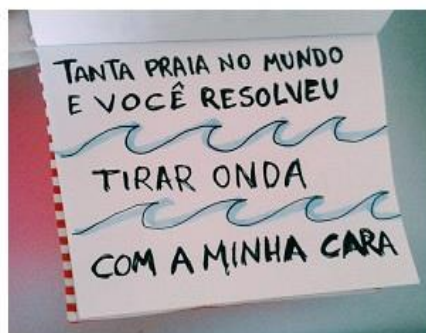 TANTA PRAIA NO MUNDO
E VOCÊ RESOLVEU
TIRAR ONDA
COM A MINHA CARA